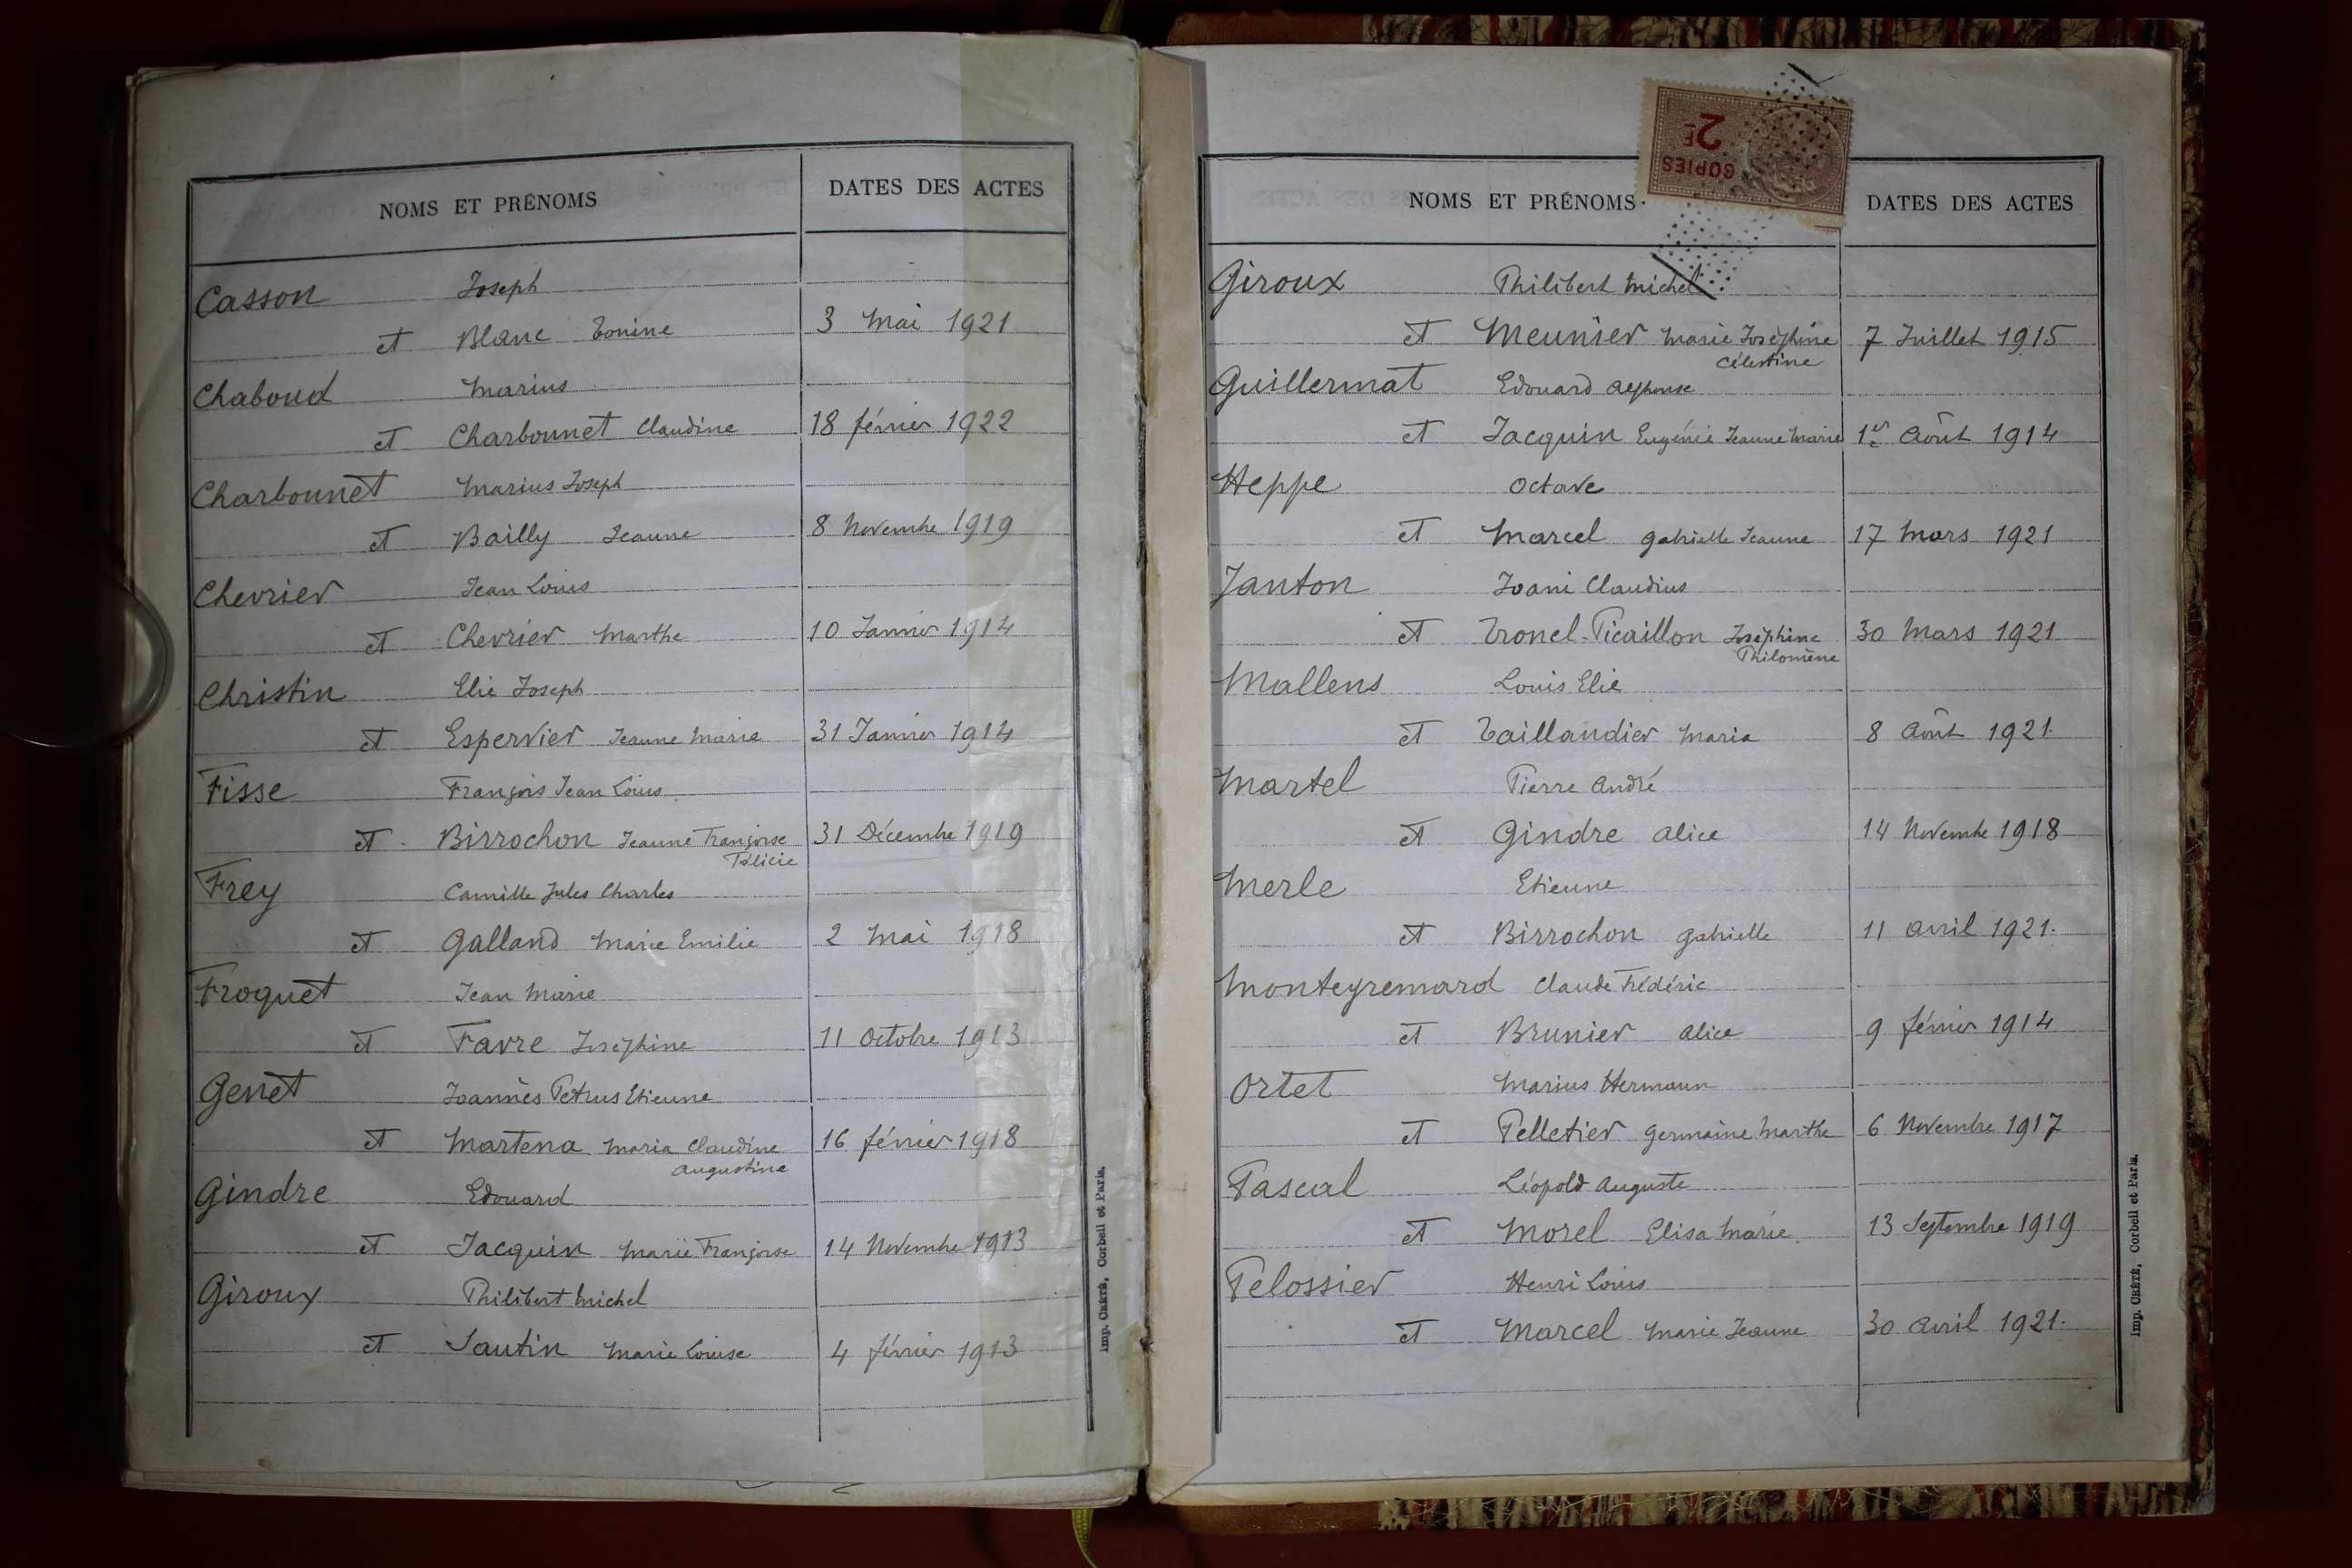 NOMS ET PRÉNOMS DATES DES ACTES
Casson Joseph
et Blanc Tonine 3 Mai 1921
Chaboud Marius
et Charbonnet Claudine 18 février 1922
Charbonnet Marius Joseph
et Bailly Jeanne 8 Novembre 1919
Chevrier Jean Louis
et Chevrier Marthe 10 Janvier 1914
Christin Elie Joseph
et Espervier Jeanne Marie 31 Janvier 1914
Fisse François Jean Louis
et Birrochon Jeanne Françoise 31 Décembre 1919
Félicie
Frey Camille Jules Charles
et Galland Marie Emilie 2 Mai 1918
Froquet Jean Marie
et Favre Joséphine 11 Octobre 1913
Genet Joannès Petrus Etienne
et Martena Maria Claudine 16 février 1918
Augustine
Gindre Edouard
et Jacquin Marie Françoise 14 Novembre 1913
Giroux Philibert Michel
et Sautin Marie Louise 4 février 1913
Imp. CRÉTÉ, Corbeil et Paris.
COPIES
2F
NOMS ET PRÉNOMS DATES DES ACTES
Giroux Philibert Michel
et Meunier Marie Joséphine 7 Juillet 1915
Célestine
Guillermat Edouard Alphonse
et Jacquin Eugénie Jeanne Marie 1er Août 1914
Heppe Octave
et Marcel Gabrielle Jeanne 17 Mars 1921
Janton Joani Claudius
et Tronel-Picaillon Joséphine 30 Mars 1921
Philomène
Mallens Louis Elie
et Taillandier Maria 8 Août 1921.
Martel Pierre André
et Gindre Alice 14 Novembre 1918
Merle Etienne
et Birrochon Gabrielle 11 Avril 1921.
Monteyremard Claude Frédéric
et Brunier Alice 9 février 1914
Ortet Marius Hermann
et Pelletier Germaine Marthe 6 Novembre 1917
Pascal Léopold Auguste
et Morel Elisa Marie 13 Septembre 1919
Pelossier Henri Louis
et Marcel Marie Jeanne 30 Avril 1921.
Imp. CRÉTÉ, Corbeil et Paris.